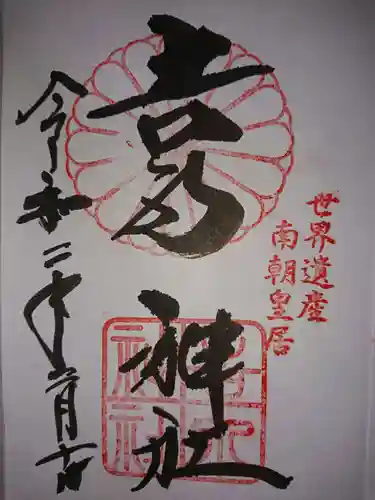 世界遺産
南朝皇居
吉水神社
令和二年六月吉日